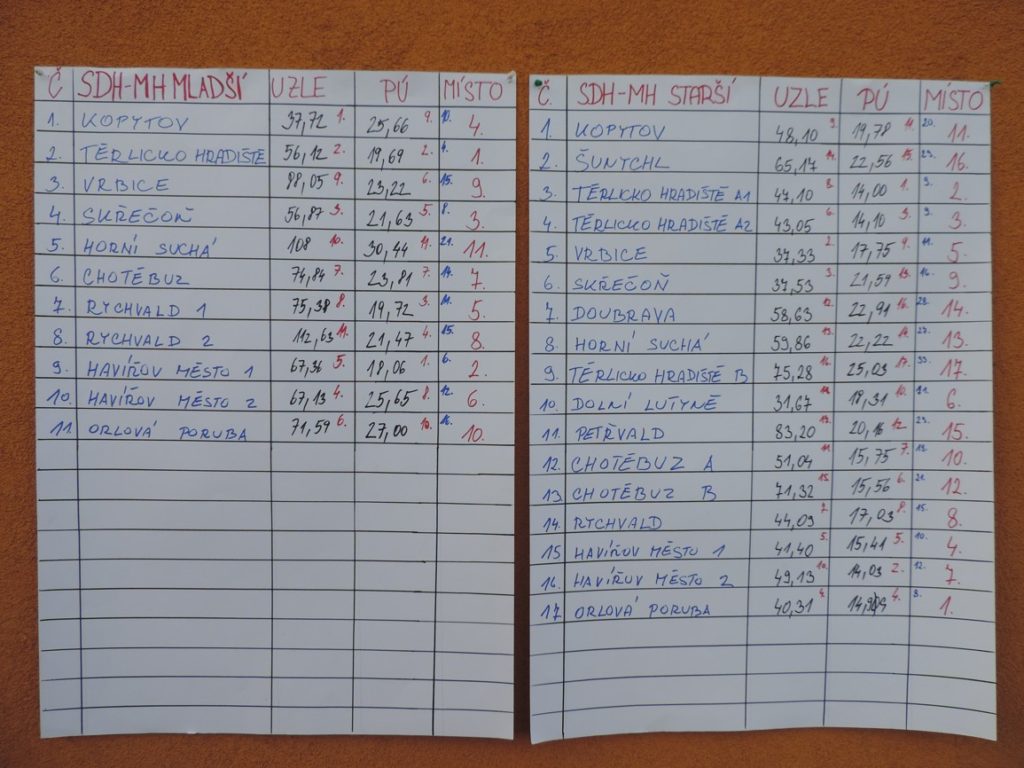 Č SDH-MH MLADŠÍ UZLE PÚ MÍSTO
1. KOPYTOV 37,72 1. 25,66 9. 10. 4.
2. TĚRLICKO HRADIŠTĚ 56,12 2. 19,69 2. 4. 1.
3. VRBICE 88,05 9. 23,22 6. 15. 9.
4. SKŘEČOŇ 56,87 3. 21,63 5. 8. 3.
5. HORNÍ SUCHÁ 108 10. 30,44 11. 21. 11.
6. CHOTĚBUZ 74,84 7. 23,81 7. 14. 7.
7. RYCHVALD 1 75,38 8. 19,72 3. 11. 5.
8. RYCHVALD 2 112,63 11. 21,47 4. 15. 8.
9. HAVÍŘOV MĚSTO 1 67,36 5. 18,06 1. 6. 2.
10. HAVÍŘOV MĚSTO 2 67,13 4. 25,65 8. 12. 6.
11. ORLOVÁ PORUBA 71,59 6. 27,00 10. 16. 10.
Č. SDH-MH STARŠÍ UZLE PÚ MÍSTO
1. KOPYTOV 48,10 9. 19,78 11. 20. 11.
2. ŠUNYCHL 65,17 14. 22,56 15. 29. 16.
3. TĚRLICKO HRADIŠTĚ A1 47,10 8. 14,00 1. 9. 2.
4. TĚRLICKO HRADIŠTĚ A2 43,05 6. 14,10 3. 9. 3.
5. VRBICE 37,33 2. 17,75 9. 11. 5.
6. SKŘEČOŇ 37,53 3. 21,59 13. 16. 9.
7. DOUBRAVA 58,63 12. 22,91 16. 28. 14.
8. HORNÍ SUCHÁ 59,86 13. 22,22 14. 27. 13.
9. TĚRLICKO HRADIŠTĚ B 75,28 16. 25,03 17. 33. 17.
10. DOLNÍ LUTYNĚ 31,67 18,31 10. 11. 6.
11. PETŘVALD 83,20 17. 12. 29. 15.
12. CHOTĚBUZ A 51,04 11. 15,75 7. 18. 10.
13. CHOTĚBUZ B 71,32 15. 15,56 6. 21. 12.
14. RYCHVALD 44,09 7. 17,03 8. 15. 8.
15 HAVÍŘOV MĚSTO 1 41,40 5. 15,41 5. 10. 4.
16. HAVÍŘOV MĚSTO 2 49,13 10. 14,03 2. 12. 7.
17 ORLOVÁ PORUBA 40,31 4. 4. 8. 1.